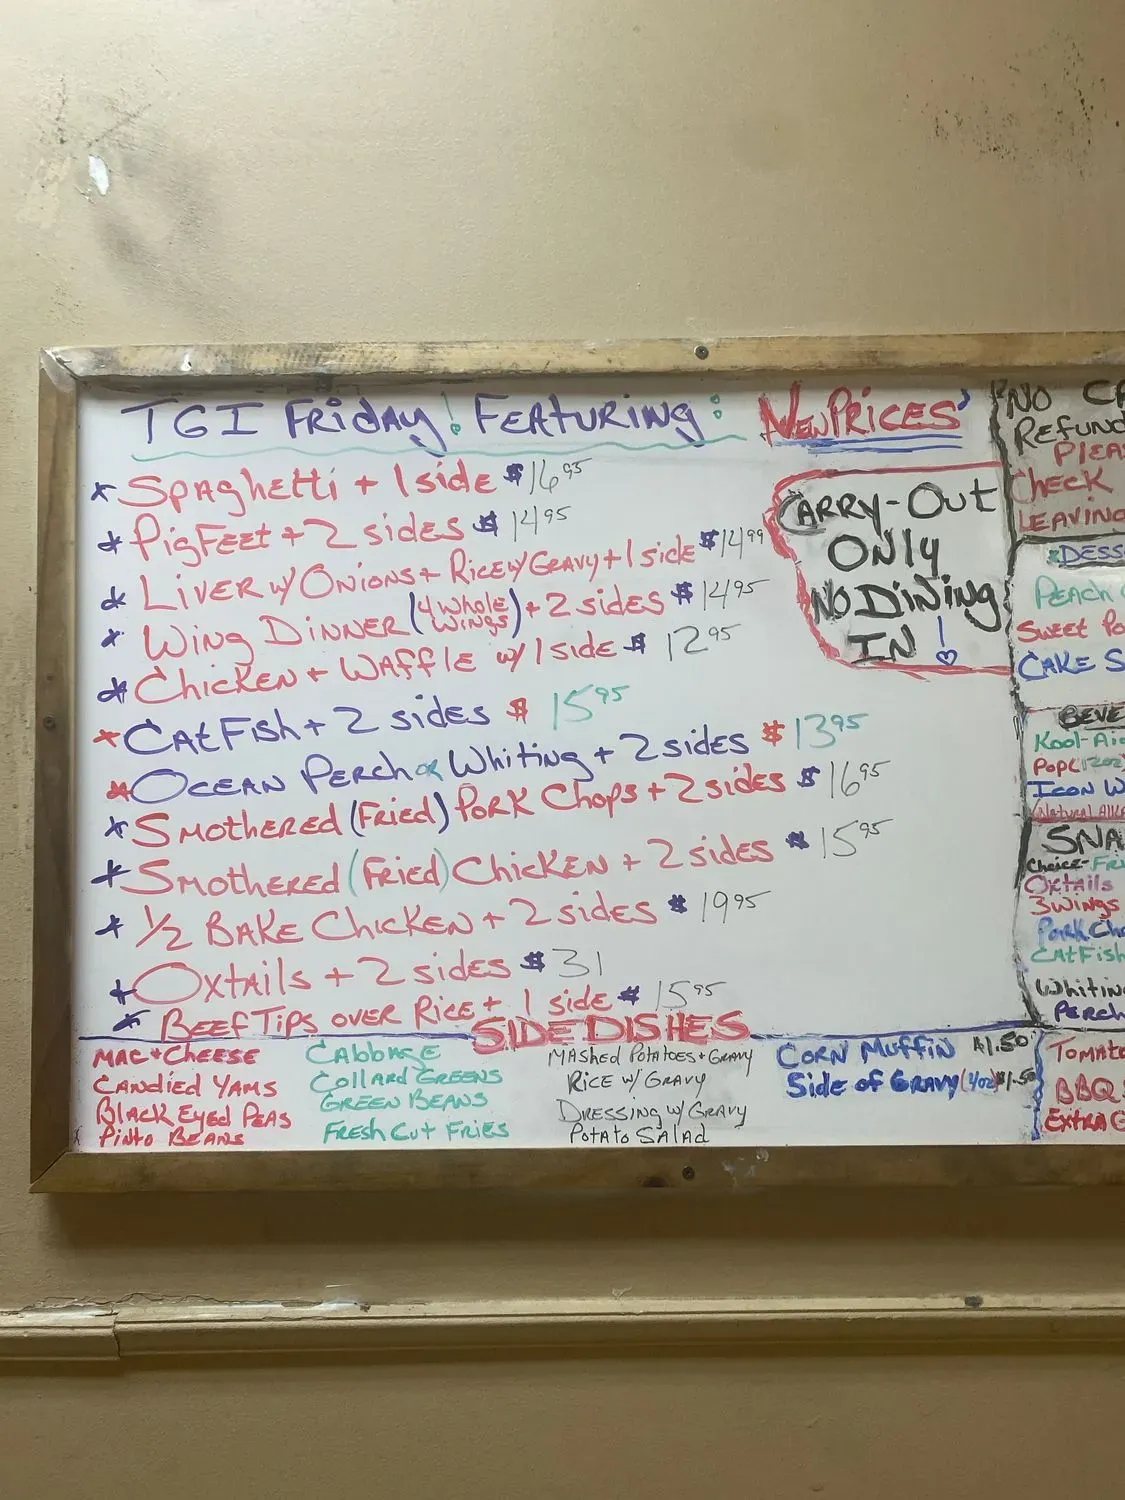 TGI Friday! FEATURING:
NEW PRICES
* Spaghetti + 1 side $16.95
* PigFEET + 2 sides $14.95
* LIVER w/ ONIONS + RICE w/ GRAVY + 1 side $14.99
* WING DINNER (4 WHOLE WINGS) + 2 sides $14.95
* CHICKEN + WAFFLE w/ 1 side $12.95
* CATFISH + 2 sides $15.95
* OCEAN PERCH OR Whiting + 2 sides $13.95
* SMOTHERED (Fried) PORK Chops + 2 sides $16.95
* SMOTHERED (Fried) CHICKEN + 2 sides $15.95
* 1/2 BAKE CHICKEN + 2 sides $19.95
* OXTAILS + 2 sides $31
* BEEF TIPS OVER RICE + 1 side $15.95
CARRY-OUT
ONLY
NO DINING
IN!
SIDE DISHES
MAC + CHEESE
CANDIED YAMS
BLACK EYED PEAS
PINTO BEANS
CABBAGE
COLLARD GREENS
GREEN BEANS
FRESH CUT FRIES
MASHED POTATOES + GRAVY
RICE w/ GRAVY
DRESSING w/ GRAVY
POTATO SALAD
CORN MUFFIN $1.50
Side of GRAVY (1/02) $1.50
NO
REFUND
CHECK
LEAVING
PEACH
SWEET
CAKE
Kool-Aid
POP (12oz)
ICON
Natural
Choice-
Oxtails
3 WINGS
Pork
CATFISH
Whiting
PERCH
BBQ
EXTRA